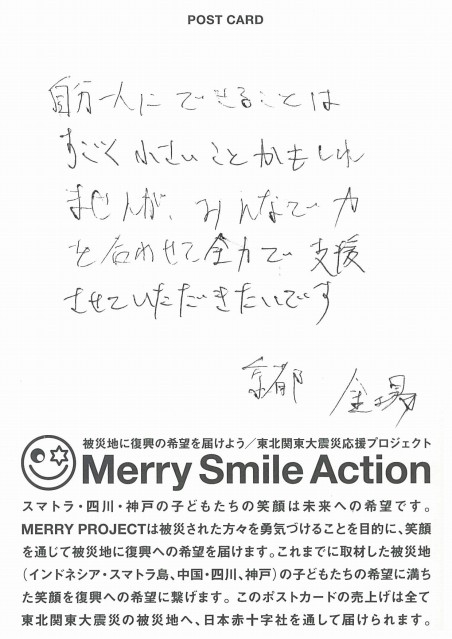 POST CARD
自分一人にできることは
すごく小さいことかもしれ
ませんが、みんなで力
を合わせて全力で支援
させていただきたいです
京都
被災地に復興の希望を届けよう／東北関東大震災応援プロジェクト
Merry Smile Action
スマトラ・四川・神戸の子どもたちの笑顔は未来への希望です。
MERRY PROJECTは被災された方々を勇気づけることを目的に、笑顔
を通じて被災地に復興への希望を届けます。これまでに取材した被災地
（インドネシア・スマトラ島、中国・四川、神戸）の子どもたちの希望に満ち
た笑顔を復興への希望に繋げます。このポストカードの売上げは全て
東北関東大震災の被災地へ、日本赤十字社を通して届けられます。